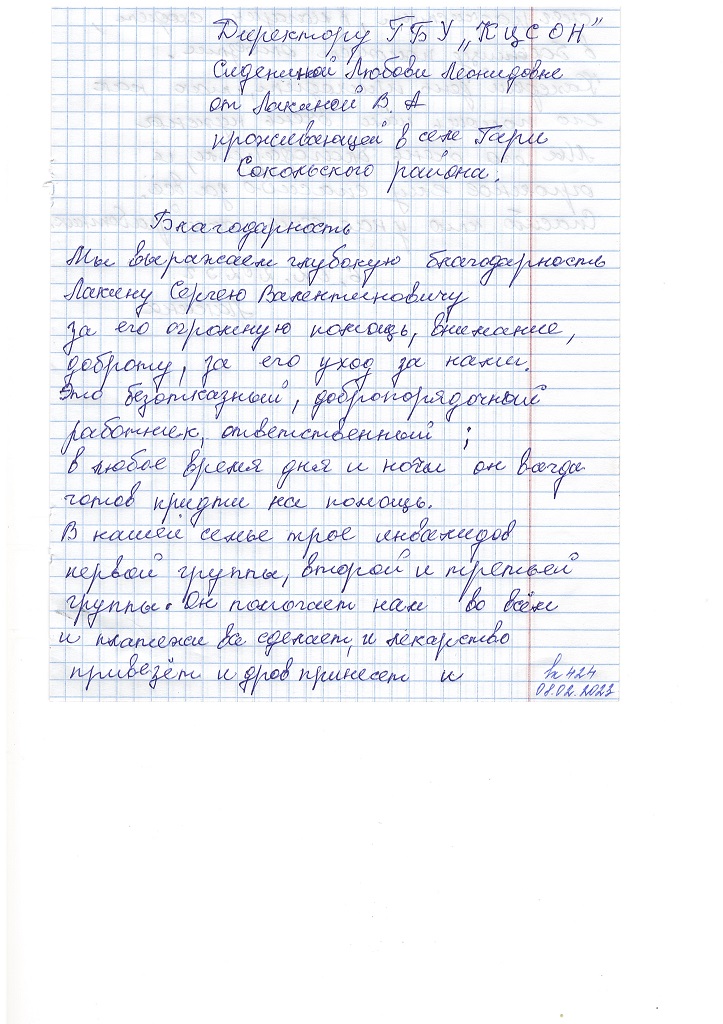 Директору ГБУ „КЦСОН”
Сидениной Любови Леонидовне
от Лакиной В. А
проживающей в селе Гари
Сокольского района.
Благодарность
Мы выражаем глубокую благодарность
Лакину Сергею Валентиновичу
за его огромную помощь, внимание,
доброту, за его уход за нами.
Это безотказный, добропорядочный
работник, ответственный ;
в любое время дня и ночи он всегда
готов придти на помощь.
В нашей семье трое инвалидов
первой группы, второй и третьей
группы. Он помогает нам во всём
и платежи все сделает, и лекарство
привезёт и дров принесет и
вх 424
08.02.2023